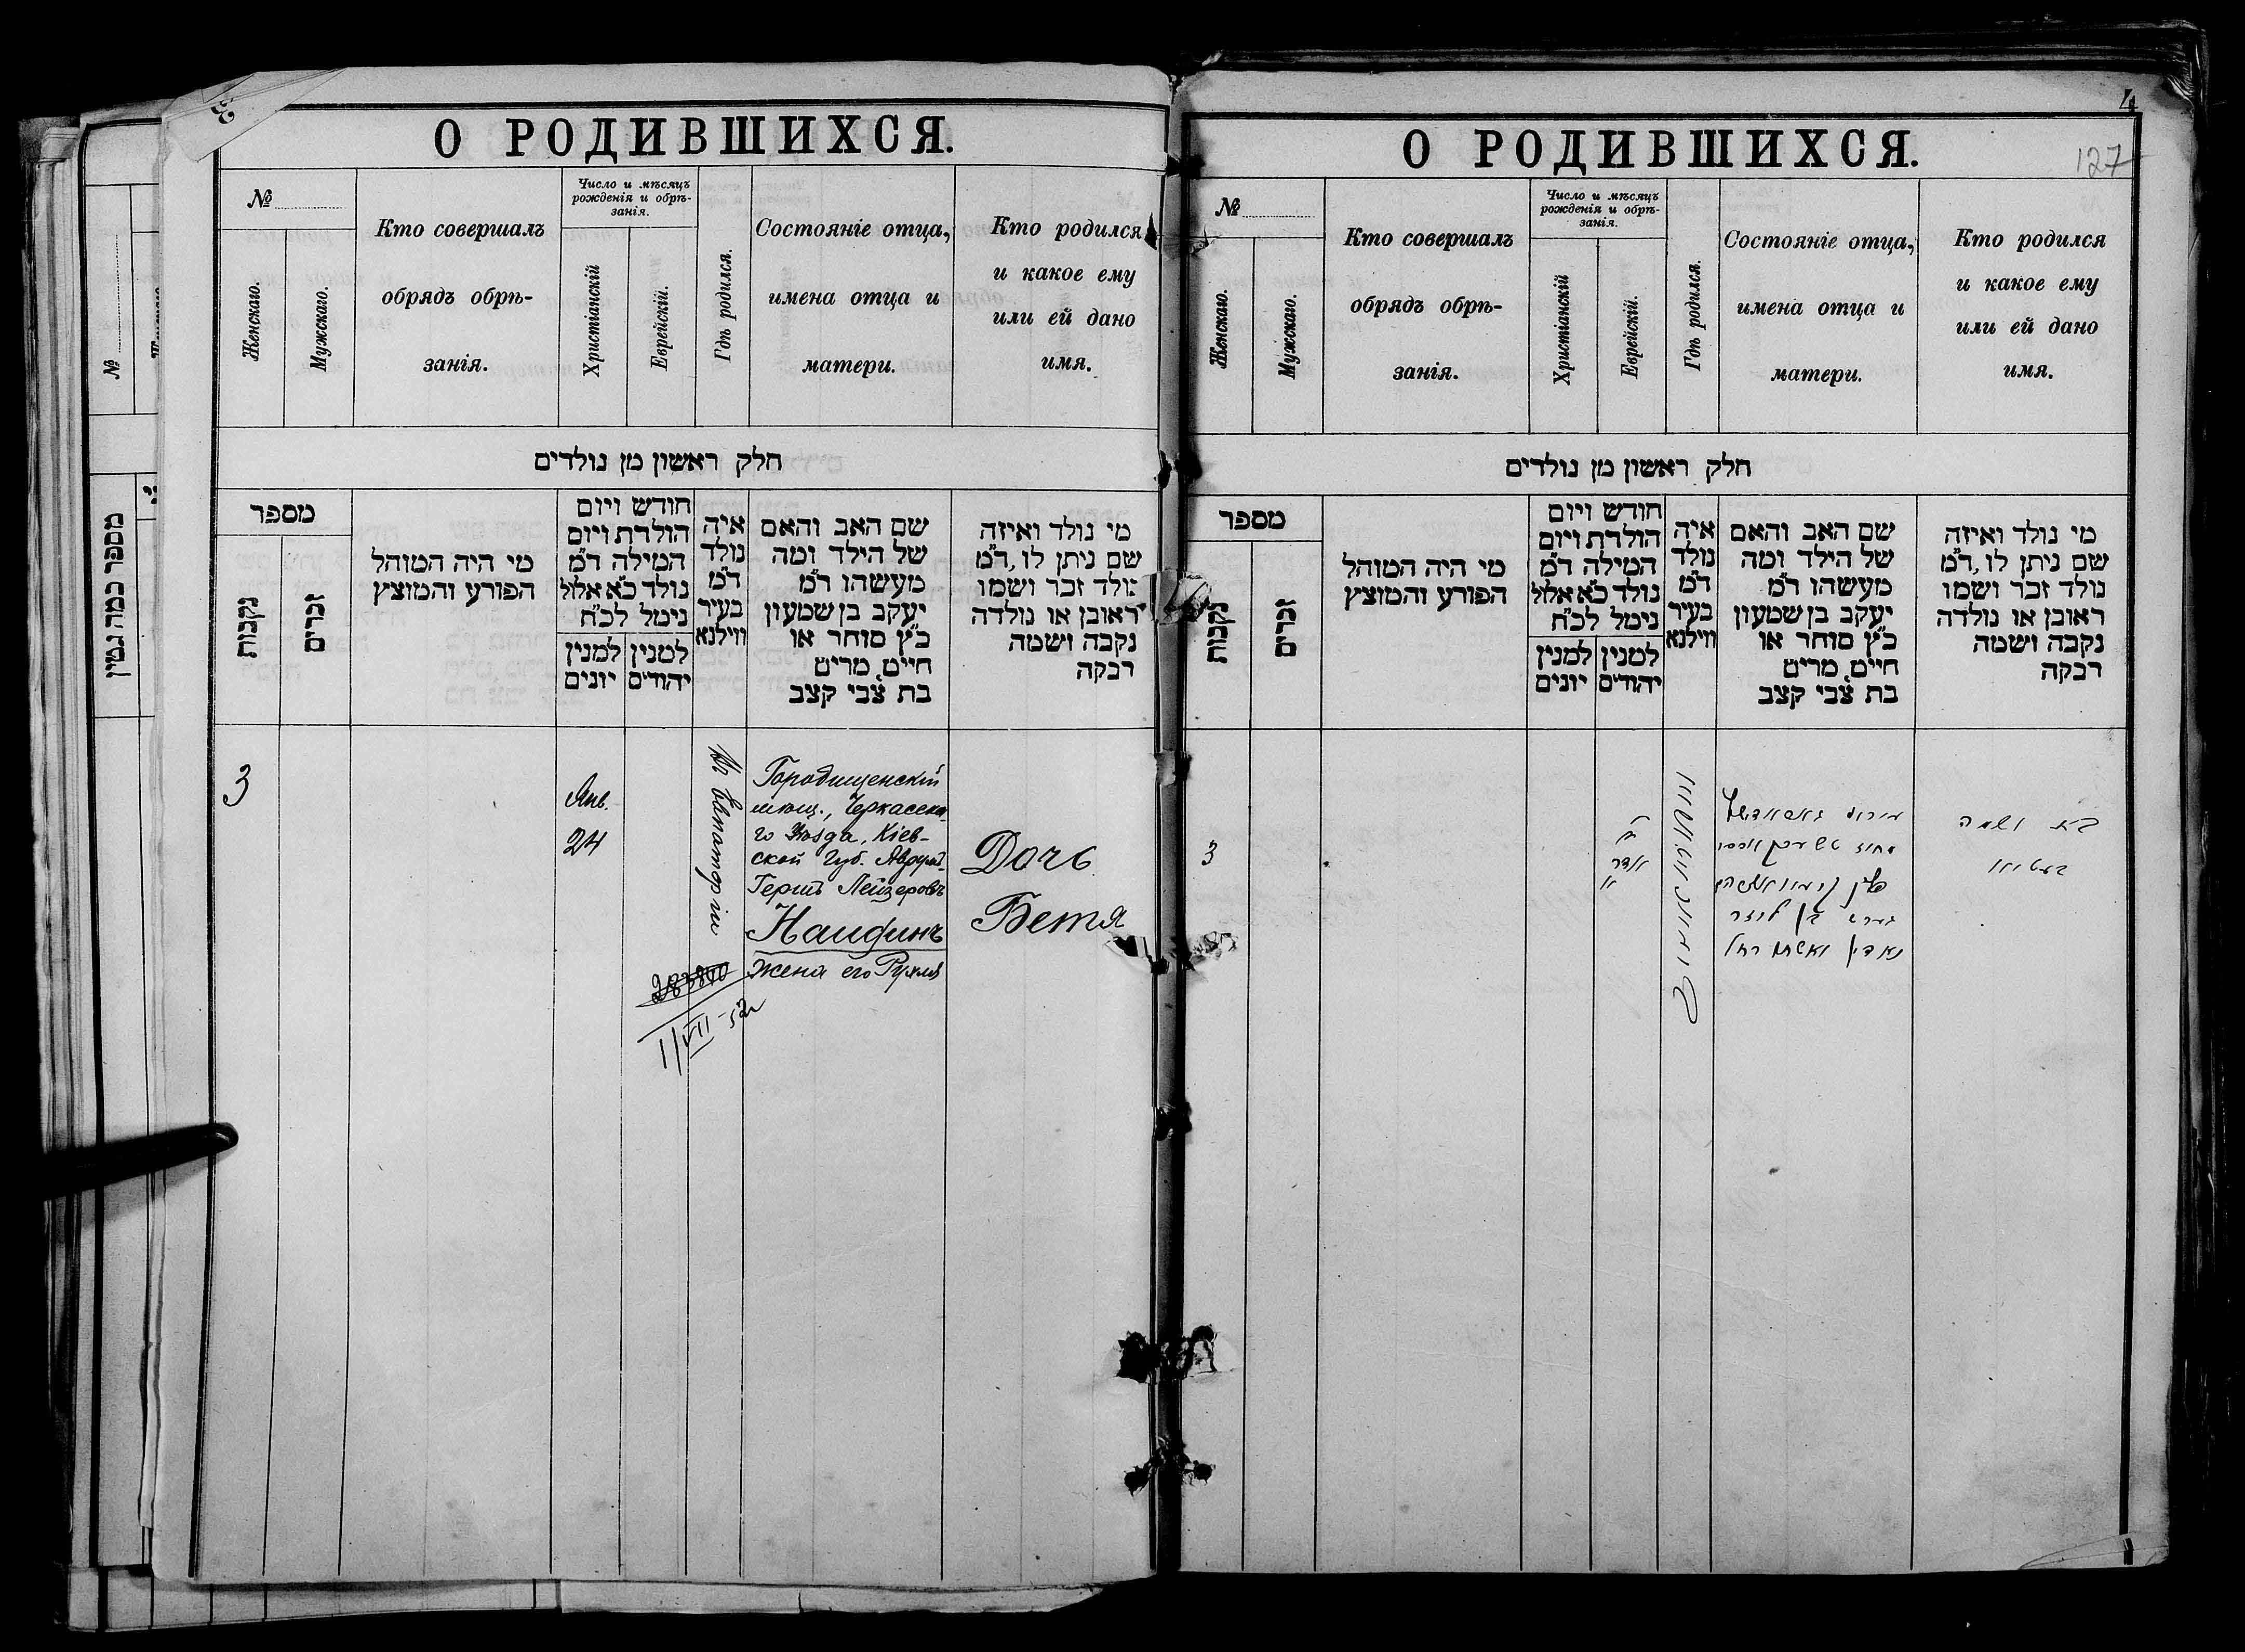 3
О РОДИВШИХСЯ.
№
Женскаго.
Мужскаго.
Кто совершалъ
обрядъ обрѣ-
занія.
Число и мѣсяцъ
рожденія и обрѣ-
занія.
Христіанскій
Еврейскій.
Гдѣ родился.
Состояніе отца,
имена отца и
матери.
Кто родился
и какое ему
или ей дано
имя.
חלק ראשון מן נולדים
מספר
נקבות
זכרים
מי היה המוהל
הפורע והמוצץ
חודש ויום
הולדת ויום
המילה ד״מ
נולד כ״א אלול
נימל לכ״ח
למנין יונים
למנין יהודים
איה
נולד
ד״מ
בעיר
ווילנא
שם האב והאם
של הילד ומה
מעשהו ד״מ
יעקב בן שמעון
כ״ץ סוחר או
חייט, מרים
בת צבי קצב
מי נולד ואיזה
שם ניתן לו, ד״מ
נולד זכר ושמו
ראובן או נולדה
נקבה ושמה
רבקה
3
Янв.
24
Въ Евпаторіи
Городищенскій
мѣщ., Черкасска-
го уѣзда, Кіев-
ской губ.
Гершъ Лейзеровъ
Наидинъ
жена его
Дочь
Бетя
1/VII-52
№
מספר כמה גטין
4
127
О РОДИВШИХСЯ.
№
Женскаго.
Мужскаго.
Кто совершалъ
обрядъ обрѣ-
занія.
Число и мѣсяцъ
рожденія и обрѣ-
занія.
Христіанскій
Еврейскій.
Гдѣ родился.
Состояніе отца,
имена отца и
матери.
Кто родился
и какое ему
или ей дано
имя.
חלק ראשון מן נולדים
מספר
נקבות
זכרים
מי היה המוהל
הפורע והמוצץ
חודש ויום
הולדת ויום
המילה ד״מ
נולד כ״א אלול
נימל לכ״ח
למנין יונים
למנין יהודים
איה
נולד
ד״מ
בעיר
ווילנא
שם האב והאם
של הילד ומה
מעשהו ד״מ
יעקב בן שמעון
כ״ץ סוחר או
חייט, מרים
בת צבי קצב
מי נולד ואיזה
שם ניתן לו, ד״מ
נולד זכר ושמו
ראובן או נולדה
נקבה ושמה
רבקה
3
אדר
א
הערש בן לייזר
נאדין ואשתו רחל
בת ושמה